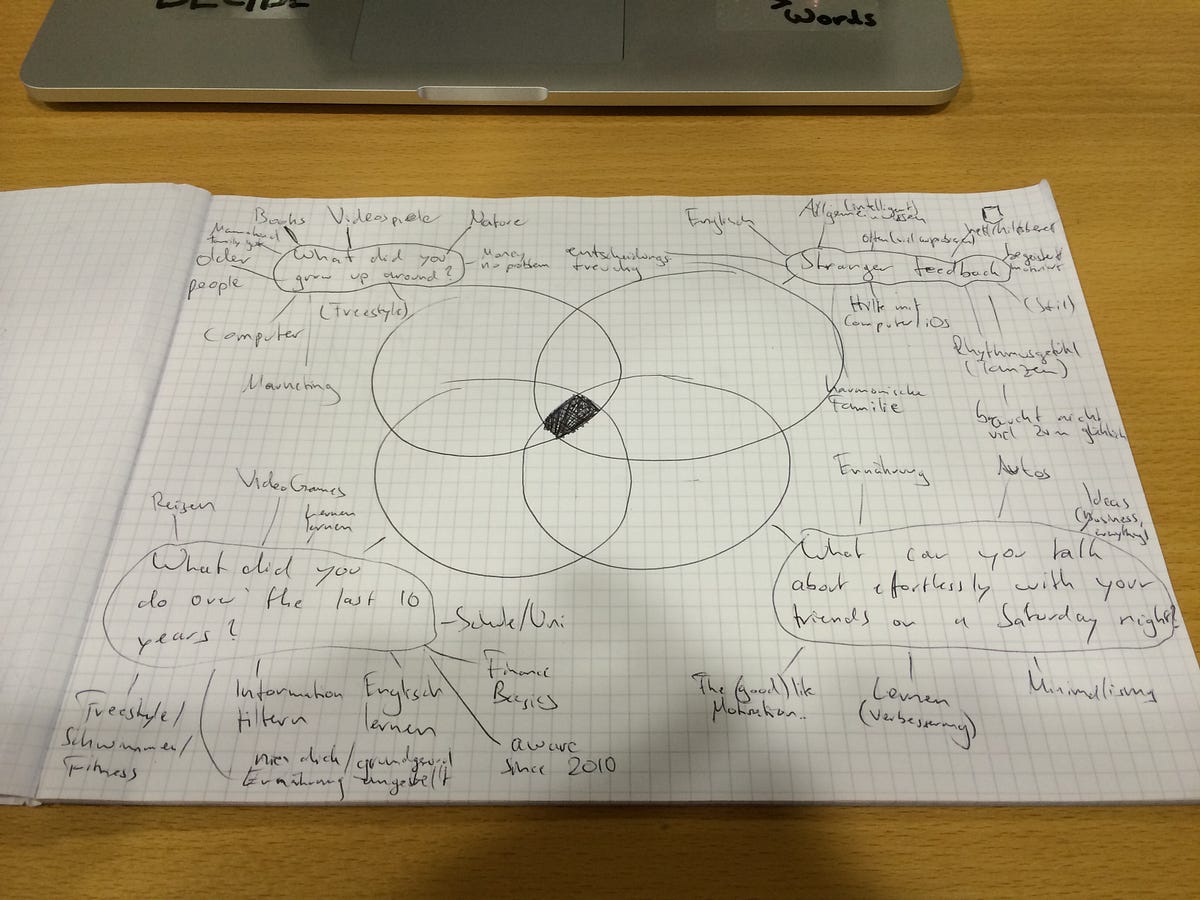 Words
Books
Videospiele
Nature
older
people
What did you
grow up around?
Money
no problem
(Freestyle)
Computer
Marketing
Englisch
(intelligent)
Allgemeinwissen
entscheidungs-
freudig
Stranger feedback
hilfsbereit
(Stil)
Hilfe mit
Computer/iOs
Rhythmusgefühl
(Tanzen)
harmonische
Familie
braucht nicht
viel zum glücklich
Reisen
VideoGames
Lernen
lernen
What did you
do over the last 10
years?
Schule/Uni
Finance
Basics
aware
since 2010
Englisch
lernen
Information
filtern
Ernährung
Freestyle/
Schwimmen/
Fitness
Ernährung
Autos
Ideas
(Business,
everything)
What can you talk
about effortlessly with your
friends on a Saturday night?
The (good) life
Motivation..
Lernen
(Verbesserung)
Minimalismus